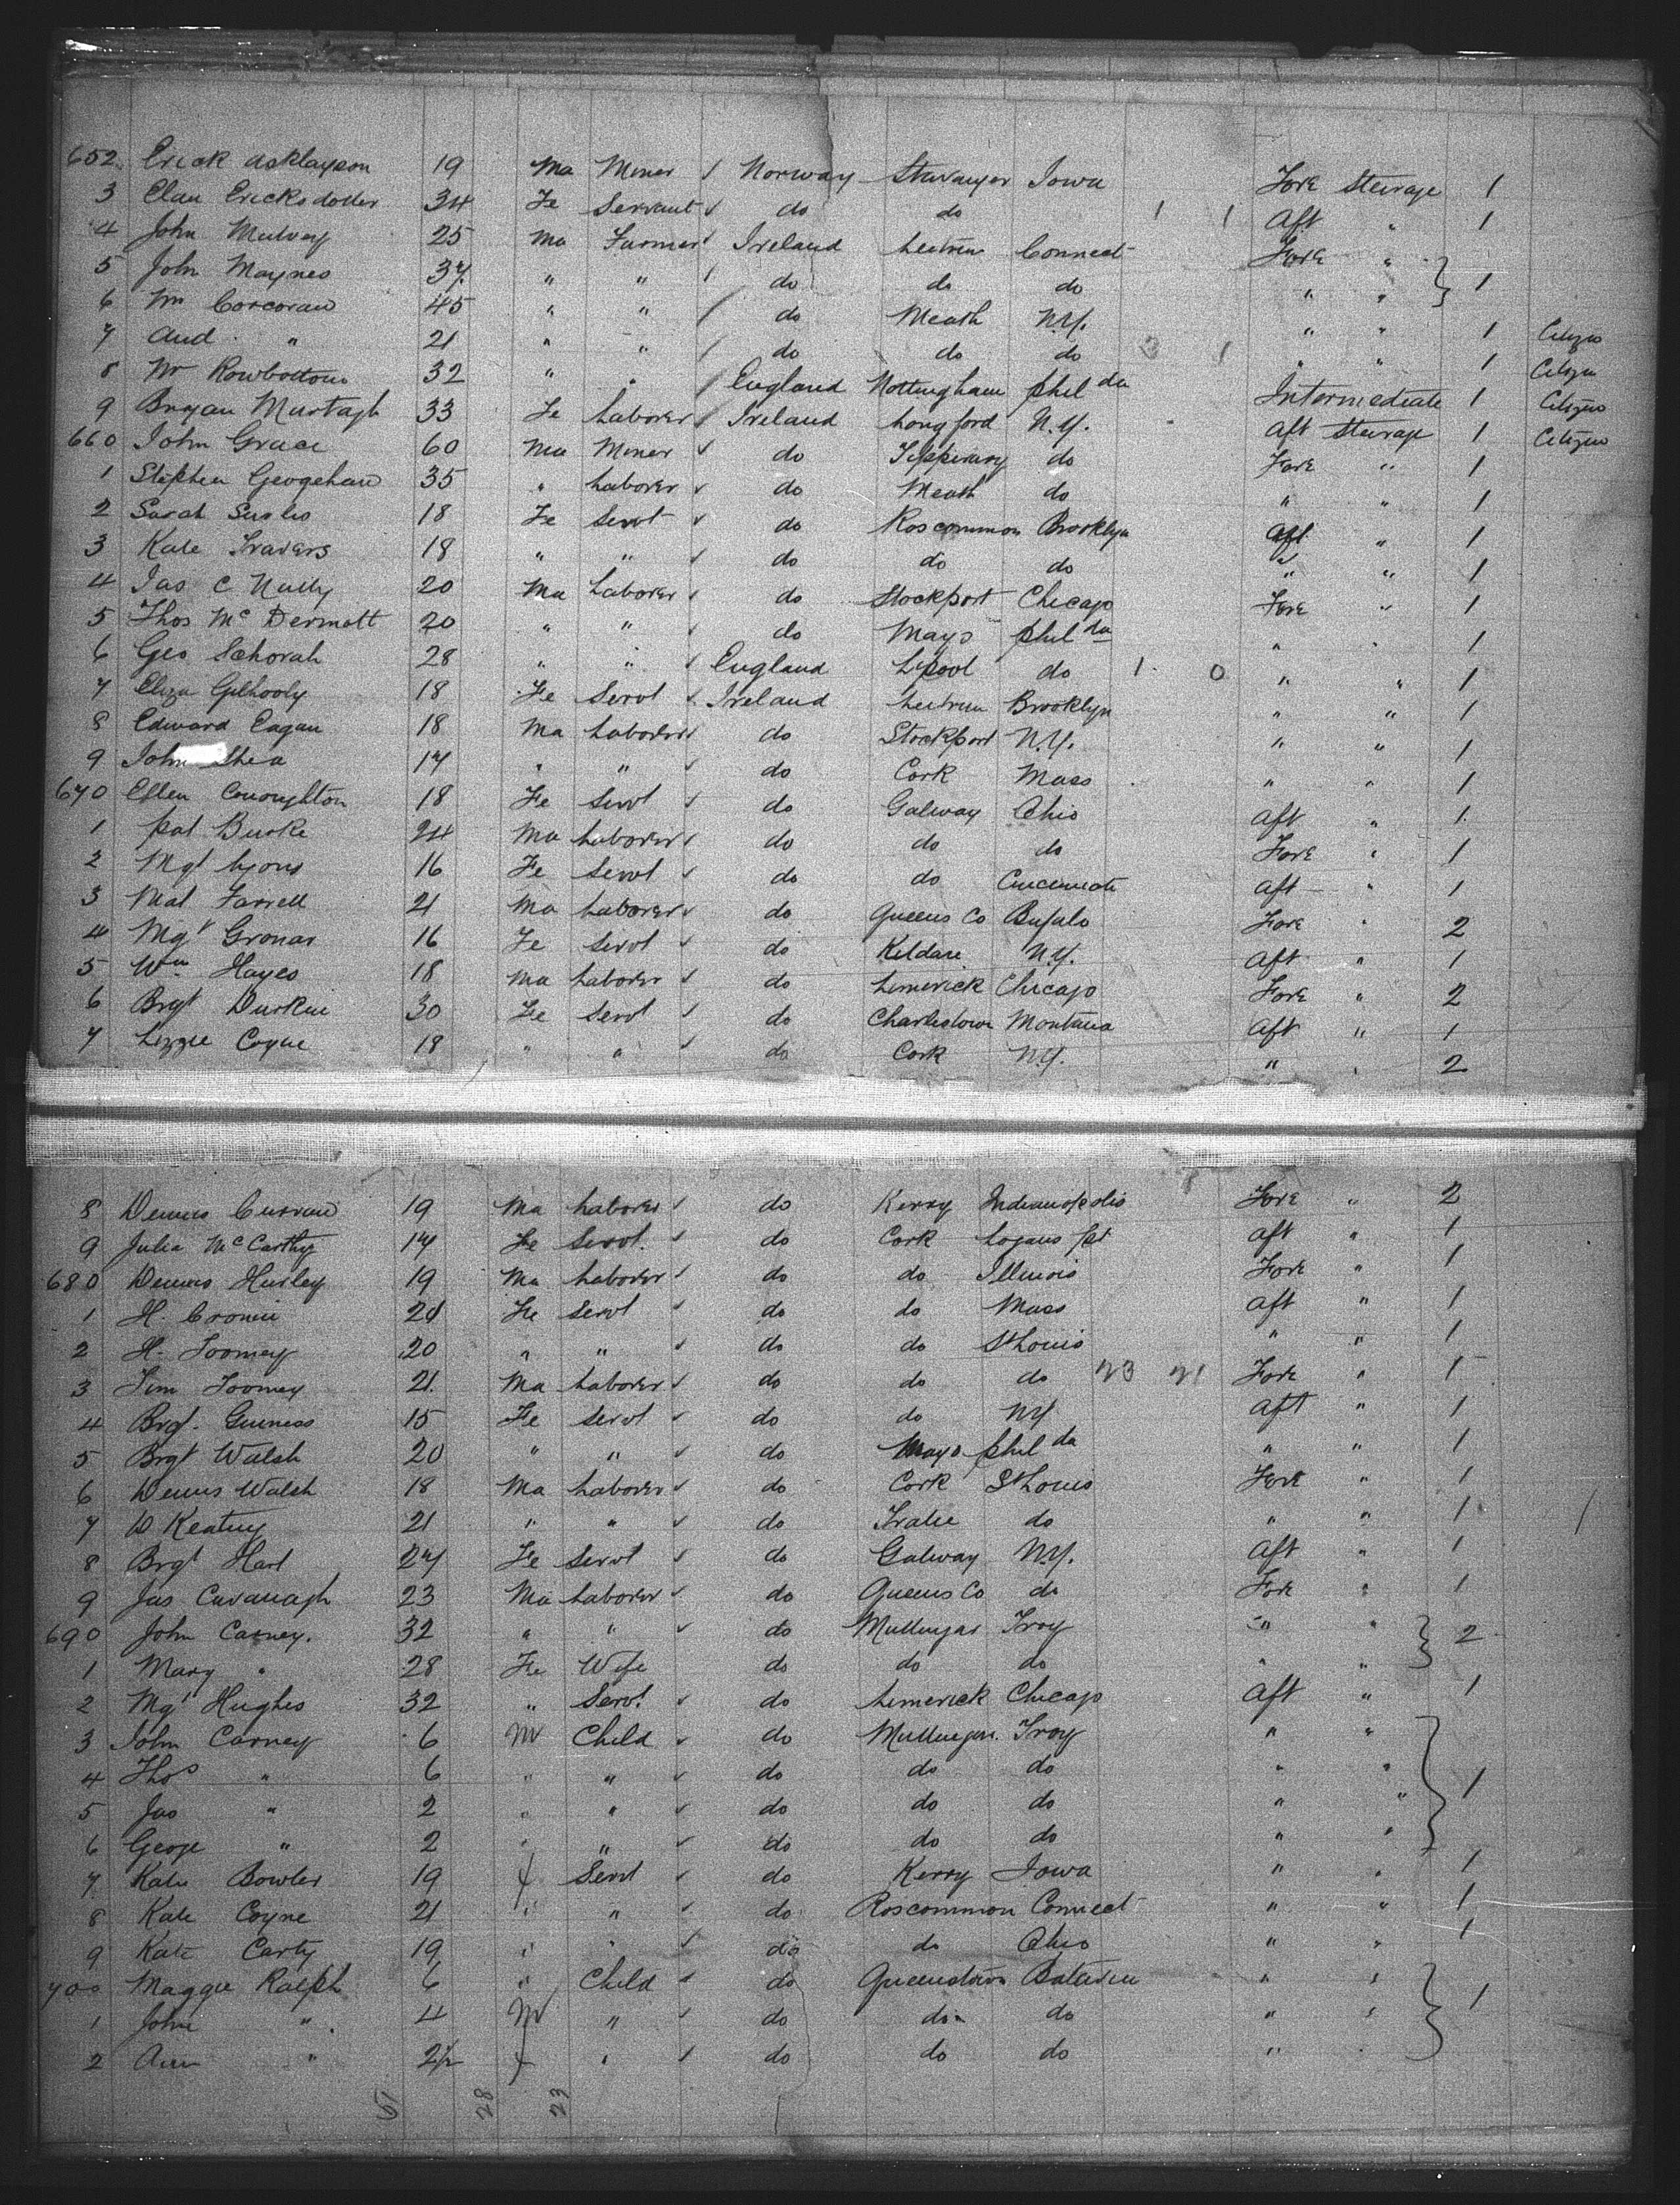 652 Erick Asklayson 19 Ma Miner ✓ Norway Stavanger Iowa Fore Steerage 1
3 Elau Ericksdotter 34 Fe Servant ✓ do do 1 1 Aft " 1
4 John Mulvey 25 Ma Farmer ✓ Ireland Leitrim Connect Fore "
5 John Maynes 37 " " / do do do " " } 1
6 Wm Corcoran 45 " " / do Meath N.Y. " " 1 Citizen
7 And " 21 " " / do do do 3 1 " " 1 Citizen
8 Wm Rowbottom 32 " " / England Nottingham Phil da Intermediate 1 Citizen
9 Bryan Murtagh 33 Fe Laborer / Ireland Longford N.Y. Aft Steerage 1 Citizen
660 John Grace 60 Ma Miner ✓ do Tipperary do Fore " 1
1 Stephen Geogehan 35 " Laborer ✓ do Meath do " " 1
2 Sarah 18 Fe Servt ✓ do Roscommon Brooklyn Aft " 1
3 Kate Travers 18 " " ✓ do do do " " 1
4 Jas C Nully 20 Ma Laborer ✓ do Stockport Chicago Fore " 1
5 Thos Mc Dermott 20 " " ✓ do Mayo Phil da " " 1
6 Geo Schorah 28 " " ✓ England L'pool do 1 0 " " 1
7 Eliza Gilhooly 18 Fe Servt ✓ Ireland Leitrim Brooklyn " " 1
8 Edward Eagan 18 Ma Laborer ✓ do Stockport N.Y. " " 1
9 John Shea 17 " " ✓ do Cork Mass " " 1
670 Ellen Conoughton 18 Fe Servt ✓ do Galway Ohio Aft " 1
1 Pat Burke 24 Ma Laborer ✓ do do do Fore " 1
2 Mgt Lyons 16 Fe Servt ✓ do do Cincennati Aft " 1
3 Mat Farrell 21 Ma Laborer ✓ do Queens Co Bufalo Fore " 2
4 Mgt Gronar 16 Fe Servt ✓ do Kildare N.Y. Aft " 1
5 Wm Hayes 18 Ma Laborer ✓ do Limerick Chicago Fore " 2
6 Brgt Durkin 30 Fe Servt ✓ do Charlestown Montana Aft " 1
7 Lizzie Coyne 18 " " ✓ do Cork N.Y. " " 2
8 Dennis Curran 19 Ma Laborer ✓ do Kerry Indianopolis Fore " 2
9 Julia McCarthy 17 Fe Servt. ✓ do Cork Logans pt Aft " 1
680 Dennis Hurley 19 Ma Laborer ✓ do do Illinois Fore " 1
1 H. Cronin 20 Fe Servt ✓ do do Mass Aft " 1
2 H. Toomey 20 " " ✓ do do St Louis " " 1
3 Tim Toomey 21 Ma Laborer ✓ do do do 23 21 Fore " 1
4 Brgt. Guiness 15 Fe Servt ✓ do do NY Aft " 1
5 Brgt Walsh 20 " " ✓ do Mayo Phil da " " 1
6 Dennis Walsh 18 Ma Laborer ✓ do Cork St Louis Fore " 1
7 D Keating 21 " " ✓ do Tralee do " " 1
8 Brgt Hart 27 Fe Servt ✓ do Galway N.Y. Aft " 1
9 Jas Cavanagh 23 Ma Laborer ✓ do Queens Co do Fore " 1
690 John Carney. 32 " " ✓ do Mullingar Troy " "
1 Mary " 28 Fe Wife do do do " " } 2
2 Mgt Hughes 32 " Servt. ✓ do Limerick Chicago Aft " 1
3 John Carney 6 M Child ✓ do Mullingar Troy " "
4 Thos " 6 " " ✓ do do do " "
5 Jas " 2 " " ✓ do do do " " } 1
6 George " 2 " " ✓ do do do " "
7 Kate Bowler 19 f Servt ✓ do Kerry Iowa " " 1
8 Kate Coyne 21 " " ✓ do Roscommon Connect " " 1
9 Kate Carty 19 " " ✓ do do Ohio " " 1
700 Maggie Ralph 6 " Child ✓ do Queenstown " "
1 John " 4 M " ✓ do do do " " } 1
2 Ann " 2½ f " ✓ do do do " "
51 28 23